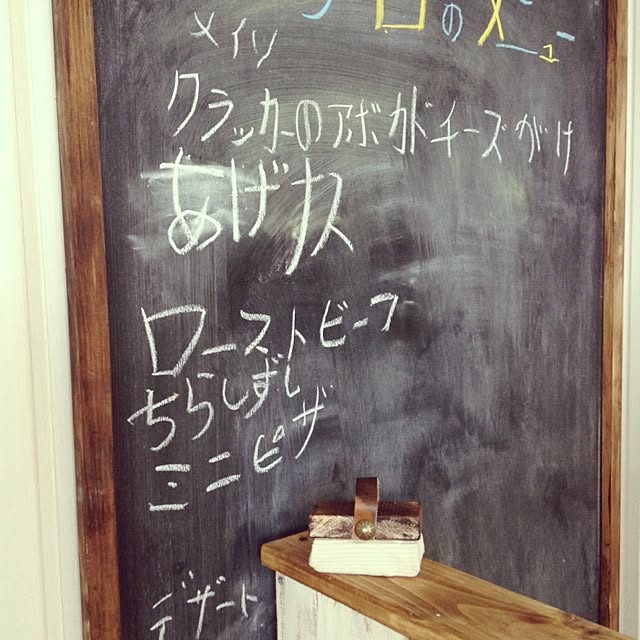 日のメニュー
メイソ
クラッカーのアボカドチーズがけ
あげカス
ローストビーフ
ちらしずし
ミニピザ
デザート